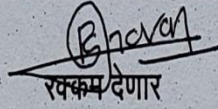 Bhavan
रक्कम देणार